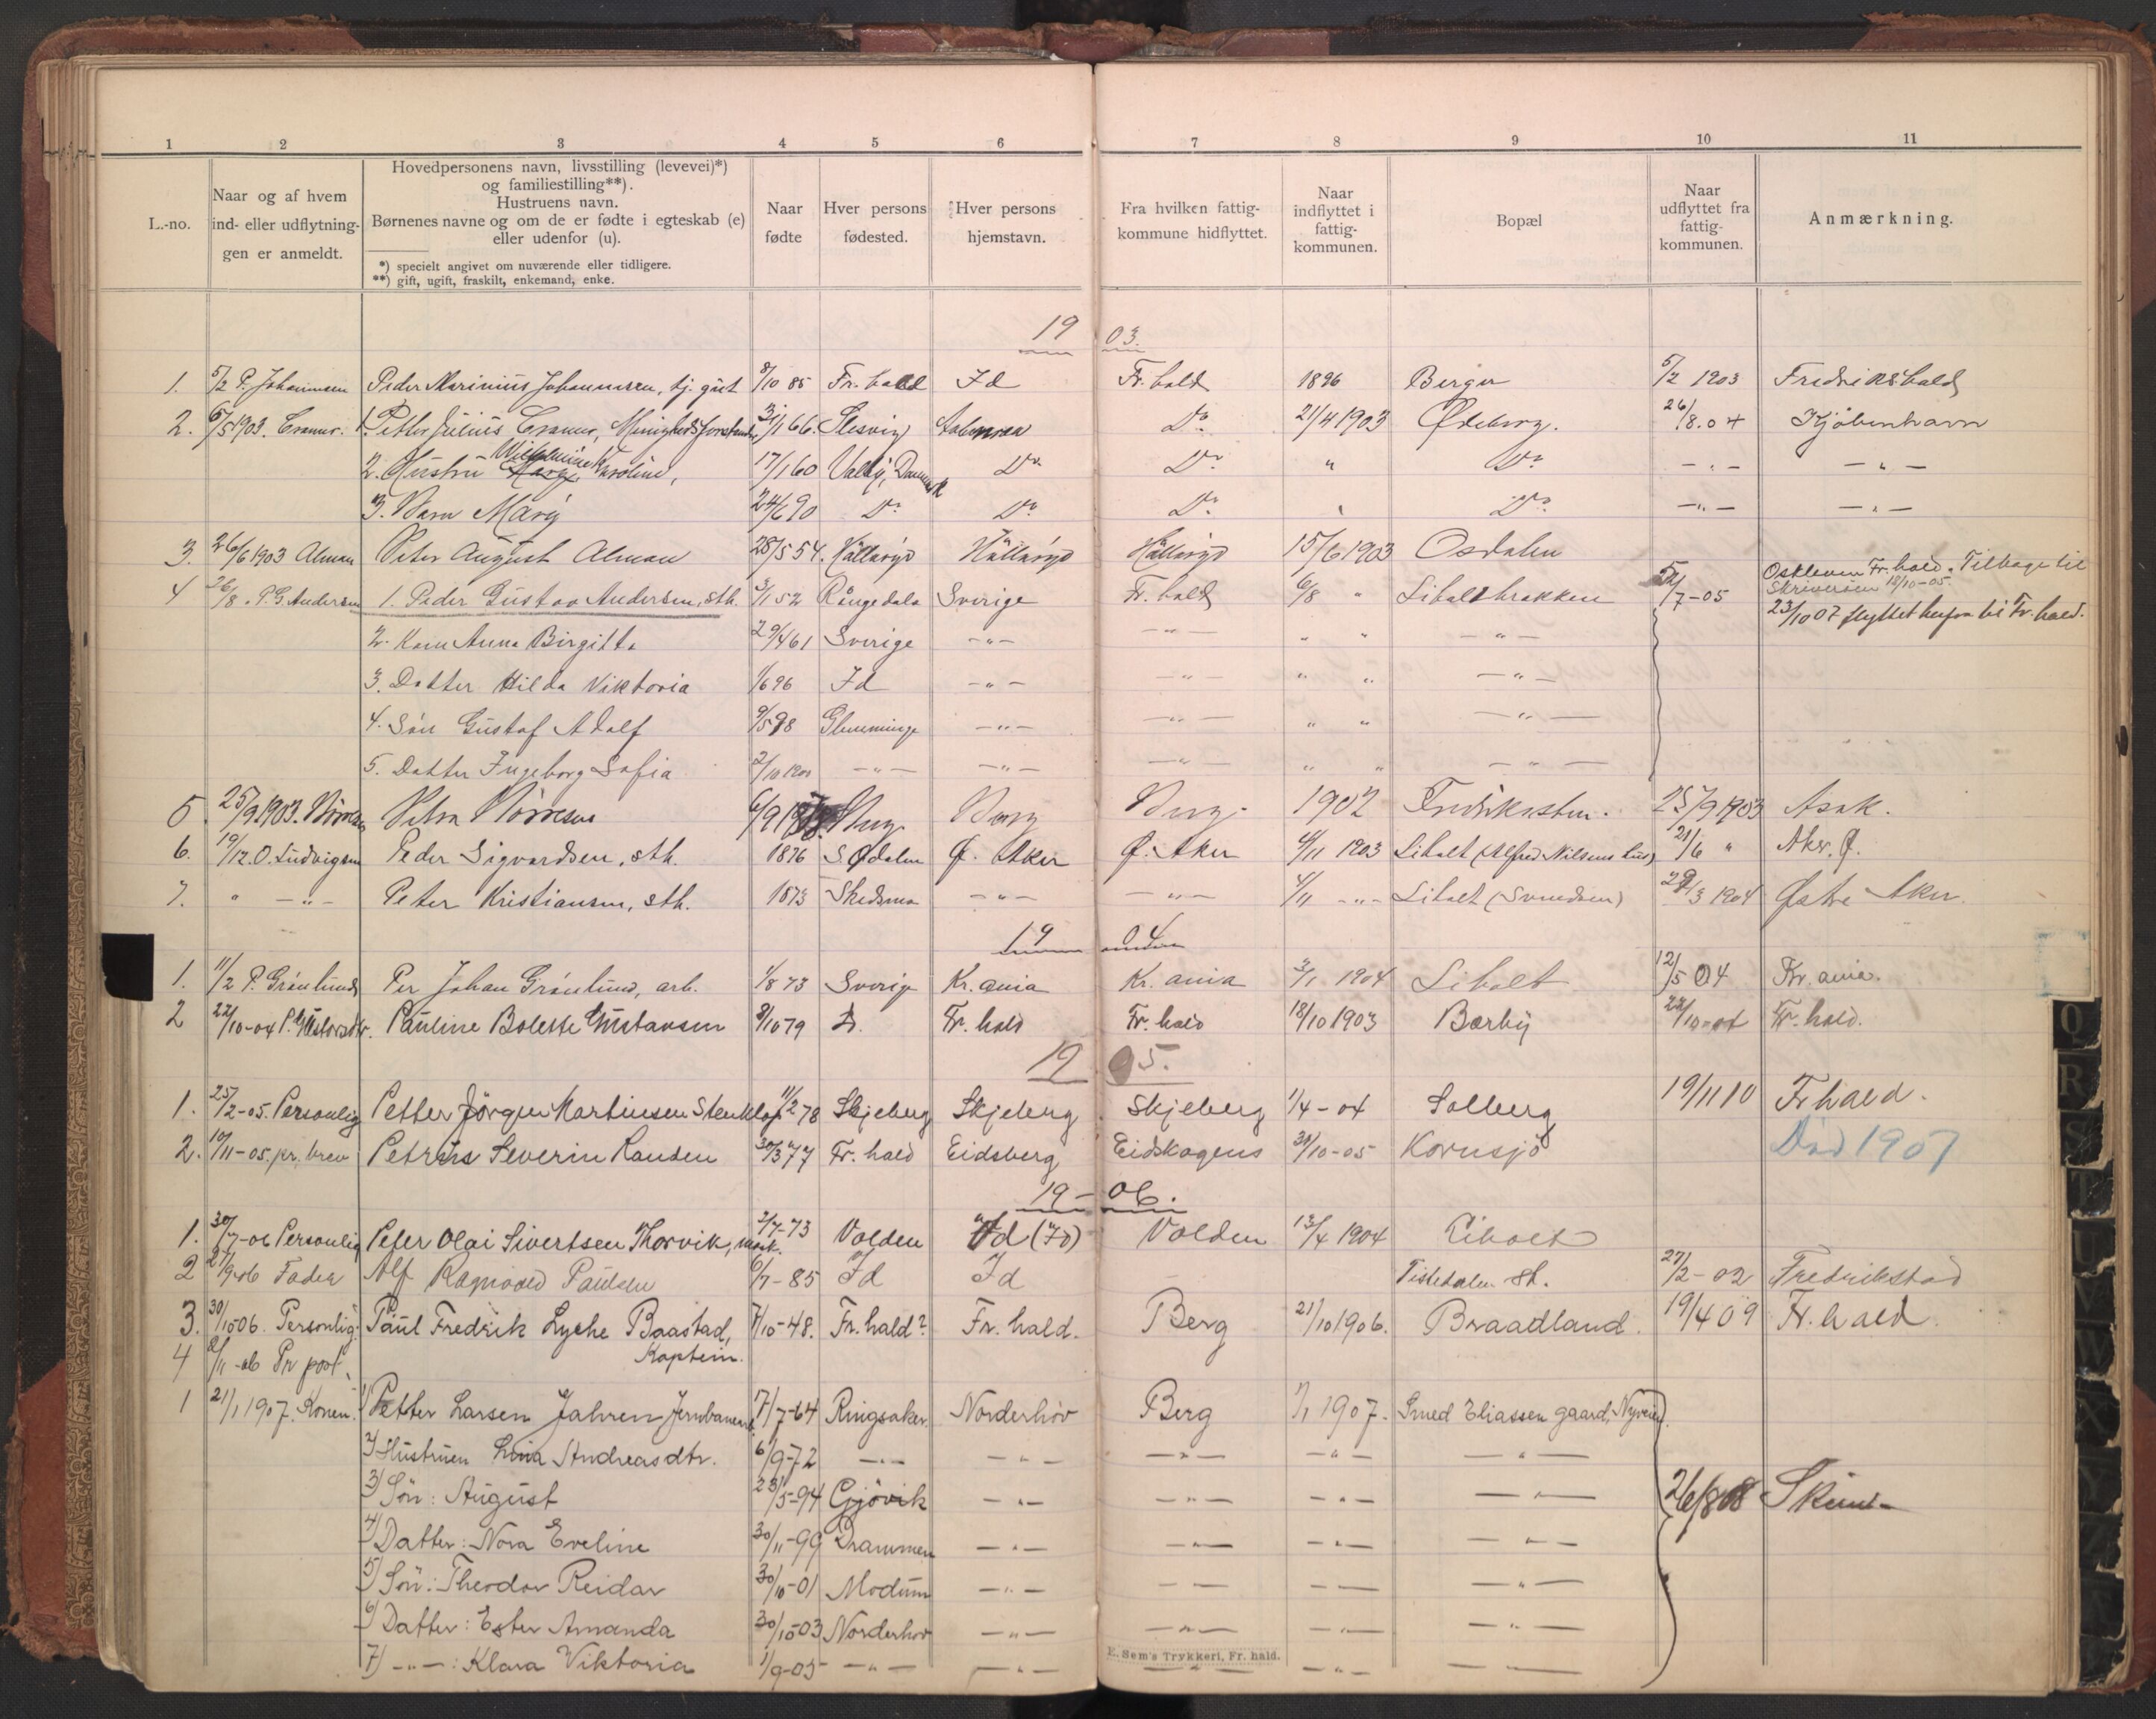 1 2 3 4 5 6 7 8 9 10 11
L.-no.
Naar og af hvem
ind- eller udflytnin-
gen er anmeldt.
Hovedpersonens navn, livsstilling (levevei)*)
og familiestilling**).
Hustruens navn.
Børnenes navne og om de er fødte i egteskab (e)
eller udenfor (u).
*) specielt angivet om nuværende eller tidligere.
**) gift, ugift, fraskilt, enkemand, enke.
Naar
fødte
Hver persons
fødested.
Hver persons
hjemstavn.
Fra hvilken fattig-
kommune hidflyttet.
Naar
indflyttet i
fattig-
kommunen.
Bopæl
Naar
udflyttet fra
fattig-
kommunen.
Anmærkning.
19 03.
1. 5/2 P. Johannsen Peder Marinius Johannsen, tj. gut 8/10 85 Fr. hald Id Fr. hald 1896 Berger 5/2 1903 Fredrikshald
2. 6/5 1903. Cramer. 1. Petter Julius Cramer, Menighedsforstander 31/1 66. Slesvig Aabenraa Do 21/4 1903 Ødeborg. 26/8.04 Kjøbenhavn
2. Hustru Wilhelmine Karoline, 17/1 60 Valby, Danmark Do Do " Do - " - - " -
3. Barn Mary 24/6 90 Do Do Do " Do - " - - " -
3. 26/6 1903 Alman Peter August Alman 28/5 54. Hällaryd Hällaryd Hällaryd 15/6 1903 Osdalen
4 26/8 . P. G. Andersen 1. Peder Gustav Andersen, sth. 3/1 52 Rångedala Sverige Fr. hald 6/8 " Libaltbrakken /7-05 Fr. hald. Tilbage til
Skriverøen 18/10-05.
23/10 07 flyttet herfra til Fr. hald.
2. Kone Anna Birgitta 29/4 61 Sverige - " - - " - " " - " -
3. Datter Hilda Viktoria 1/6 96 Id - " - - " - " " - " -
4. Søn Gustaf Adolf 9/5 98 Glemminge - " - - " - " " - " -
5. Datter Ingeborg Sofia 2/10 1900 - " - - " - - " - " " - " -
5. 25/9 1903. Petra 6/9 Berg Berg Berg. 1902 Fredriksten. 25/9 1903 Asak.
6. 19/12. O. Ludvigsen Peder Sigvardsen, sth. 1876 S. Odalen Ø. Aker Ø. Aker 4/11 1903 Libalt (Alfred Nilsens hus) 21/6 " Aker, Ø.
7. " - " - Peter Kristiansen, sth. 1873 Skedsmo - " - - " - 4/11 - " - Libalt (Svendsen) 29/3 1904 Østre Aker
19 04
1. 11/2 P. Grönlund Per Johan Grönlund, arb. 1/8 73 Sverige Kr. ania Kr. ania 2/1 1904 Libalt 12/5 04 Kr. ania.
2 22/10-04 P. Gustavsdtr. Pauline Bolette Gustavsen 8/10 79 Fr. hald Fr. hald 18/10 1903 Bærby 22/10-04 Fr. hald.
19 05.
1. 25/2-05. Personlig Petter Jörgen Martinsen Stenkløp 11/2 78 Skjeberg Skjeberg Skjeberg 1/4-04 Solberg 19/11 10 Fr hald.
2. 10/11-05. pr. brev Petrus Severin Randen 30/3 77 Fr. hald Eidsberg Eidskogens 31/10-05 Kornsjø Död 1907
19-06.
1. 30/7-06 Personlig Peter Olai Sivertsen Thorvik, mask. 2/7-73 Volden Id (Id) Volden 13/4 1904 Libalt
2 27/9-06 Fader Alf Ragnvald Paulsen 6/7-85 Id Id Tistedalen St. 27/2-02 Fredrikstad
3. 30/10-06. Personlig. Paul Fredrik Lyche Baastad, 7/10-48. Fr. hald? Fr. hald. Berg 21/10 1906. Braadland. 19/4 09 Fr. hald.
Kaptein.
4 2/11-06 Pr post.
1 21/1 1907. Konen. 1) Petter Larsen Jahren Jernbanearb. 7/7-64 Ringsaker Norderhov Berg 1/1 1907. Smed Eliassen gaard, Nyveien.
2) Hustruen Lina Andreasdtr. 6/9-72 - " - - " - - " - - " - - " -
3) Søn: August 23/5-94 Gjövik - " - - " - - " - - " - 26/8 08
4) Datter: Nora Eveline 30/11-99 Drammen - " - - " - - " - - " -
5) Søn: Theodor Reidar 30/10-01 Modum - " - - " - - " - - " -
6) Datter: Ester Amanda 30/10-03 Norderhov - " - - " - - " - - " -
7) - " - : Klara Viktoria 1/9-05 - " - - " - - " - - " - - " -
E. Sem's Trykkeri, Fr. hald.
Q
R
S
T
U
V
W
X
Y
Z